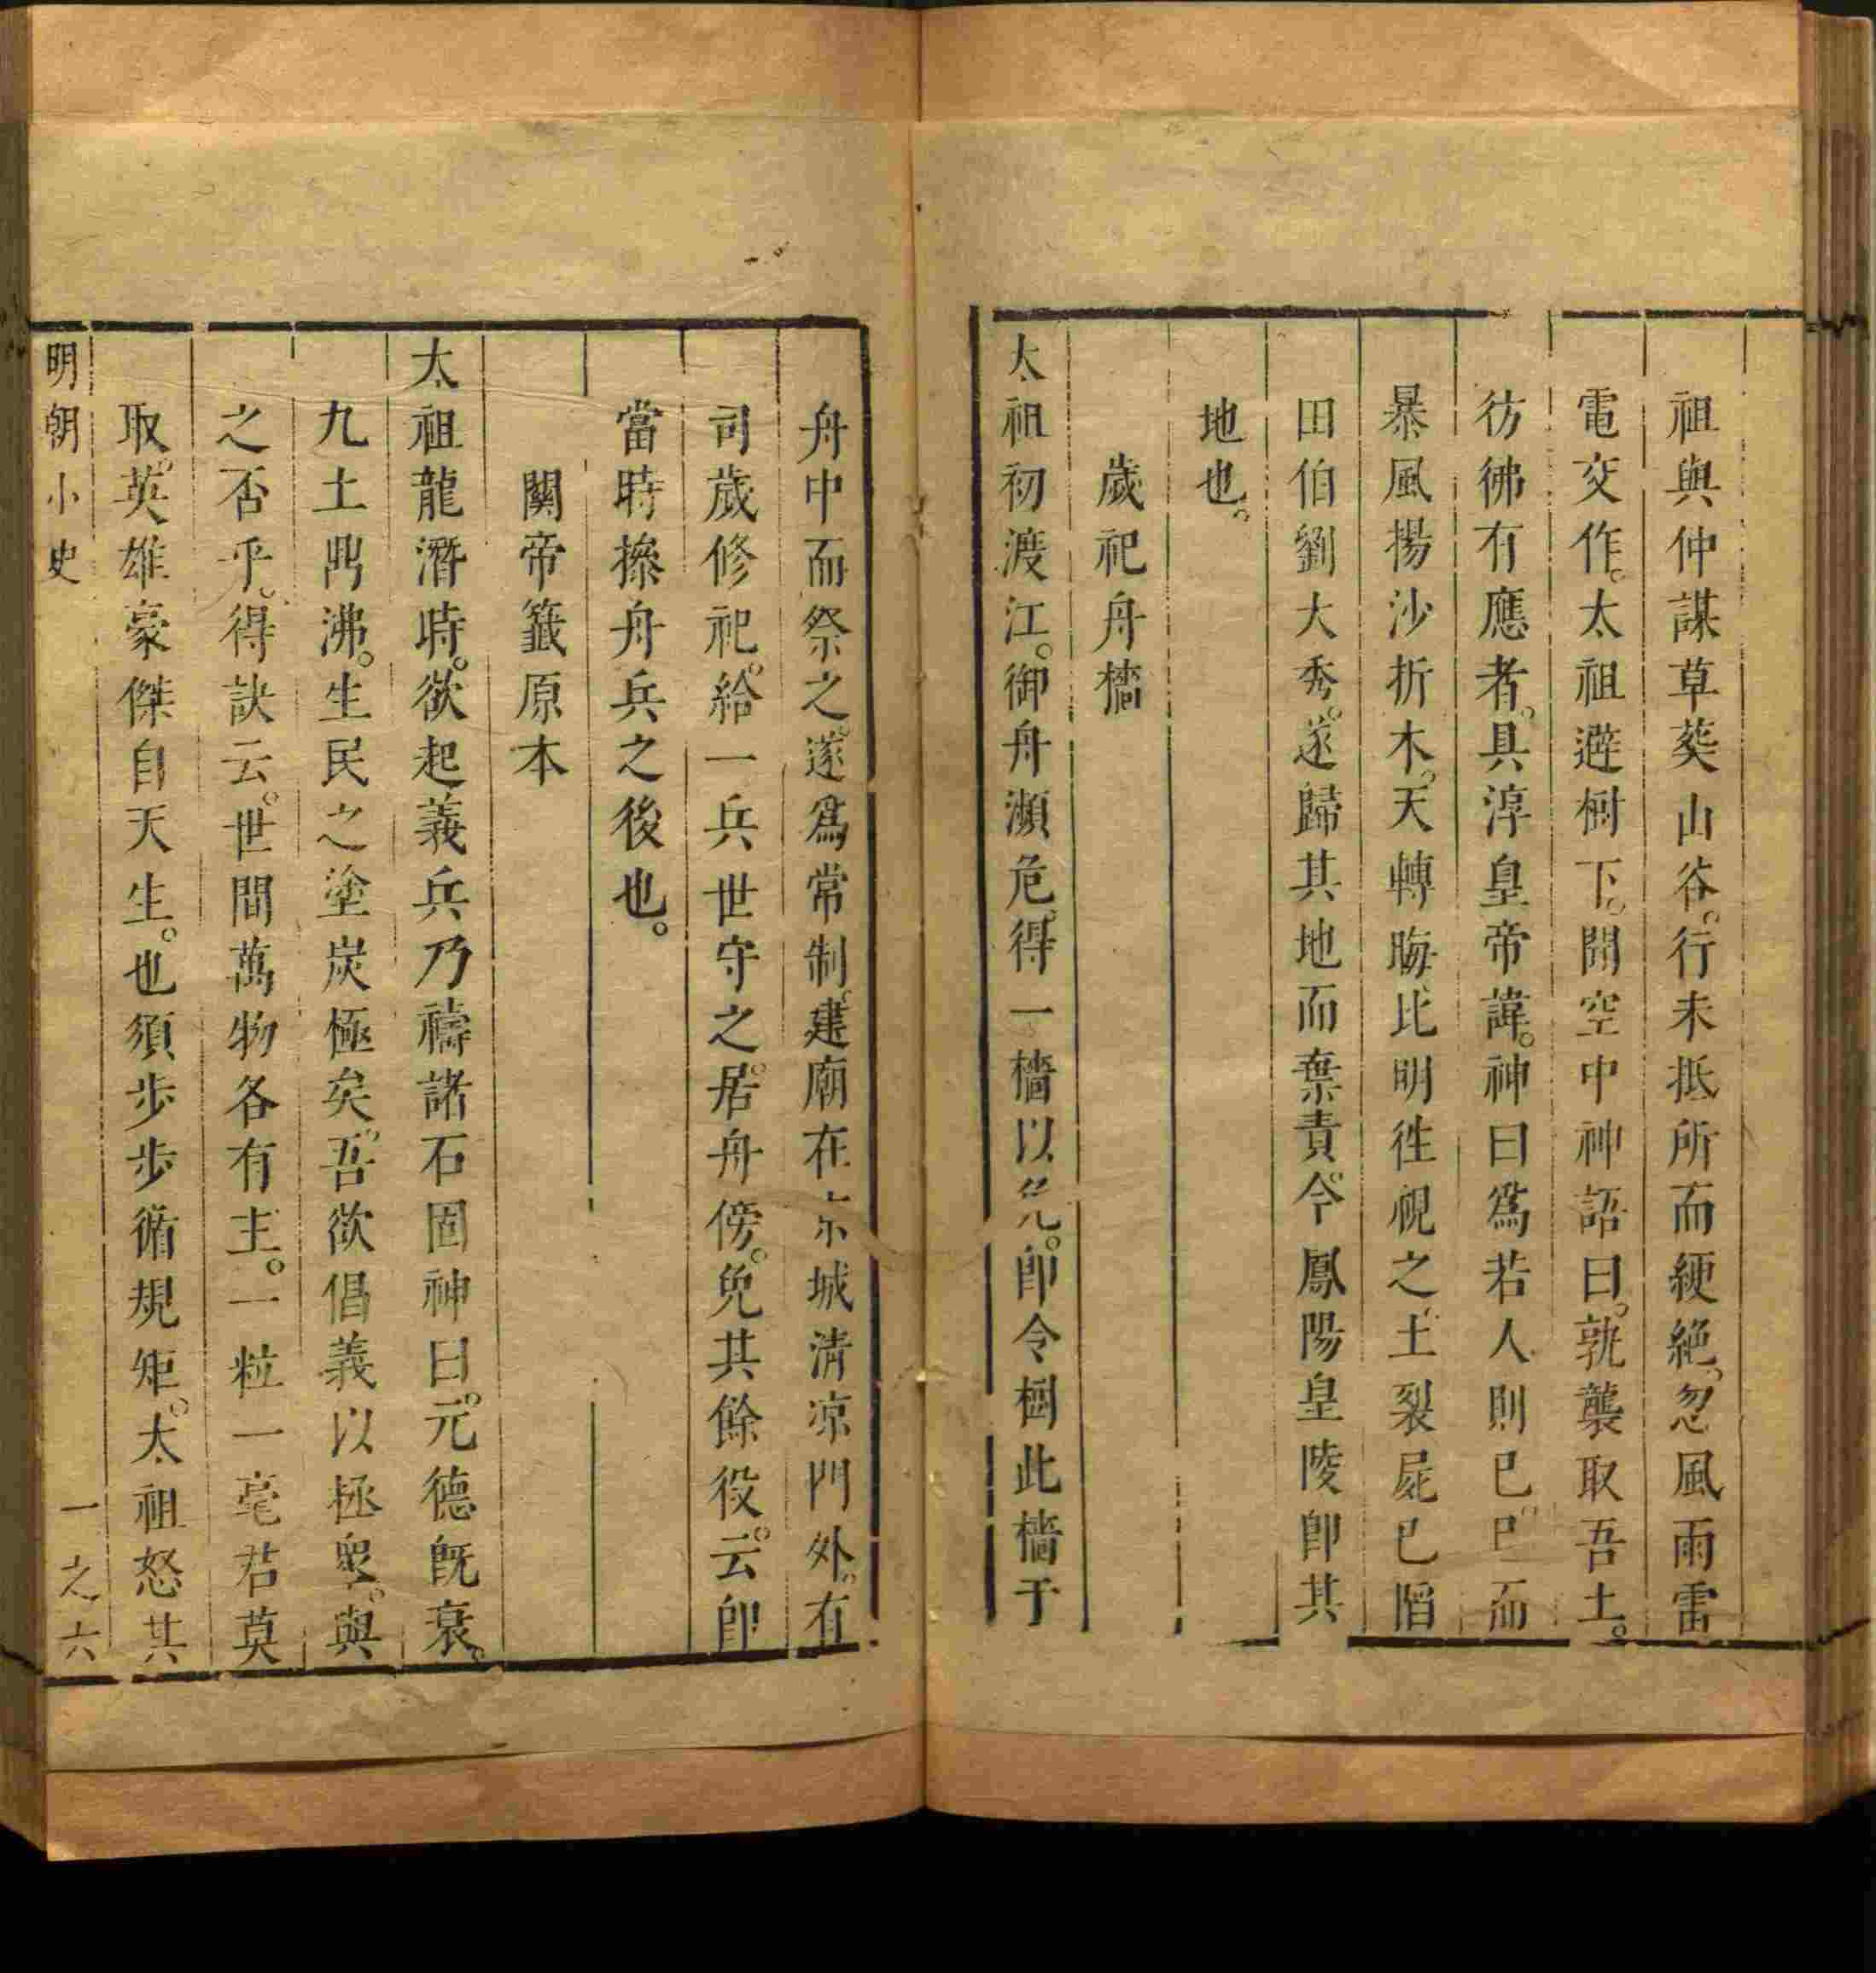 祖與仲謀草葬山谷。行未抵所而綆絕。忽風雨雷
電交作。太祖避樹下。聞空中神語曰。孰襲取吾土。
彷彿有應者。具淳皇帝諱。神曰爲若人則已。已而
暴風揚沙折木。天轉晦。比明徃視之。土裂屍已陷
田伯劉大秀。遂歸其地而棄責。今鳳陽皇陵卽其
地也。
歲祀舟檣
太祖初渡江。御舟瀕危。得一檣以免。卽令樹此檣于
舟中而祭之。遂爲常制。建廟在京城清凉門外。有
司歲修祀。給一兵世守之。居舟傍。免其餘役。云卽
當時操舟兵之後也。
關帝籤原本
太祖龍潛時。欲起義兵乃禱諸石固神曰。元德旣衰。
九土鼎沸。生民之塗炭極矣。吾欲倡義以拯衆。與
之否乎。得訣云。世間萬物各有主。一粒一毫君莫
取。英雄豪傑自天生。也須步步循規矩。太祖怒其
明朝小史
一之六